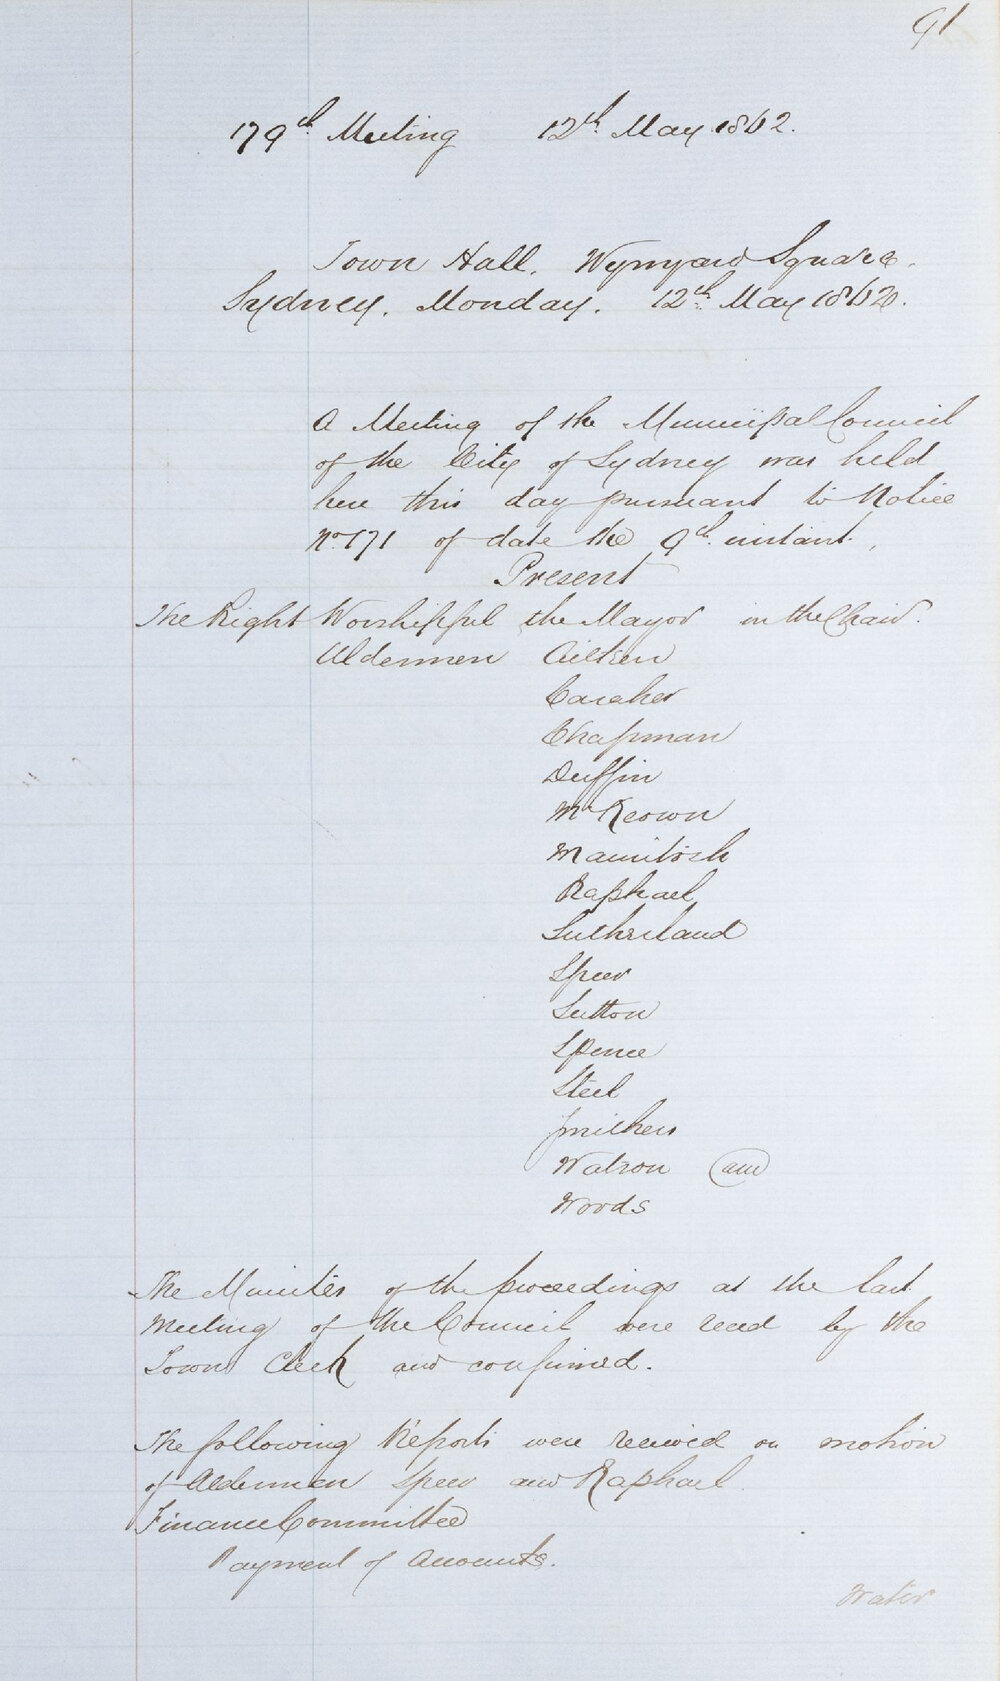 91
179th Meeting 12th May 1862.
Town Hall. Wynyard Square.
Sydney. Monday. 12th May 1862.
A Meeting of the Municipal Council
of the City of Sydney was held
here this day pursuant to Notice
No. 171 of date the 9th instant.
Present
The Right Worshipful the Mayor in the Chair.
Aldermen Aitken
Caraher
Chapman
Duffin
McKeown
Macintosh
Raphael
Sutherland
Speer
Sutton
Spence
Steel
Smithers
Watson and
Woods
The Minutes of the proceedings at the last
Meeting of the Council were read by the
Town Clerk and confirmed.
The following Reports were received on motion
of Aldermen Speer and Raphael
Finance Committee
Payment of Accounts.
Water